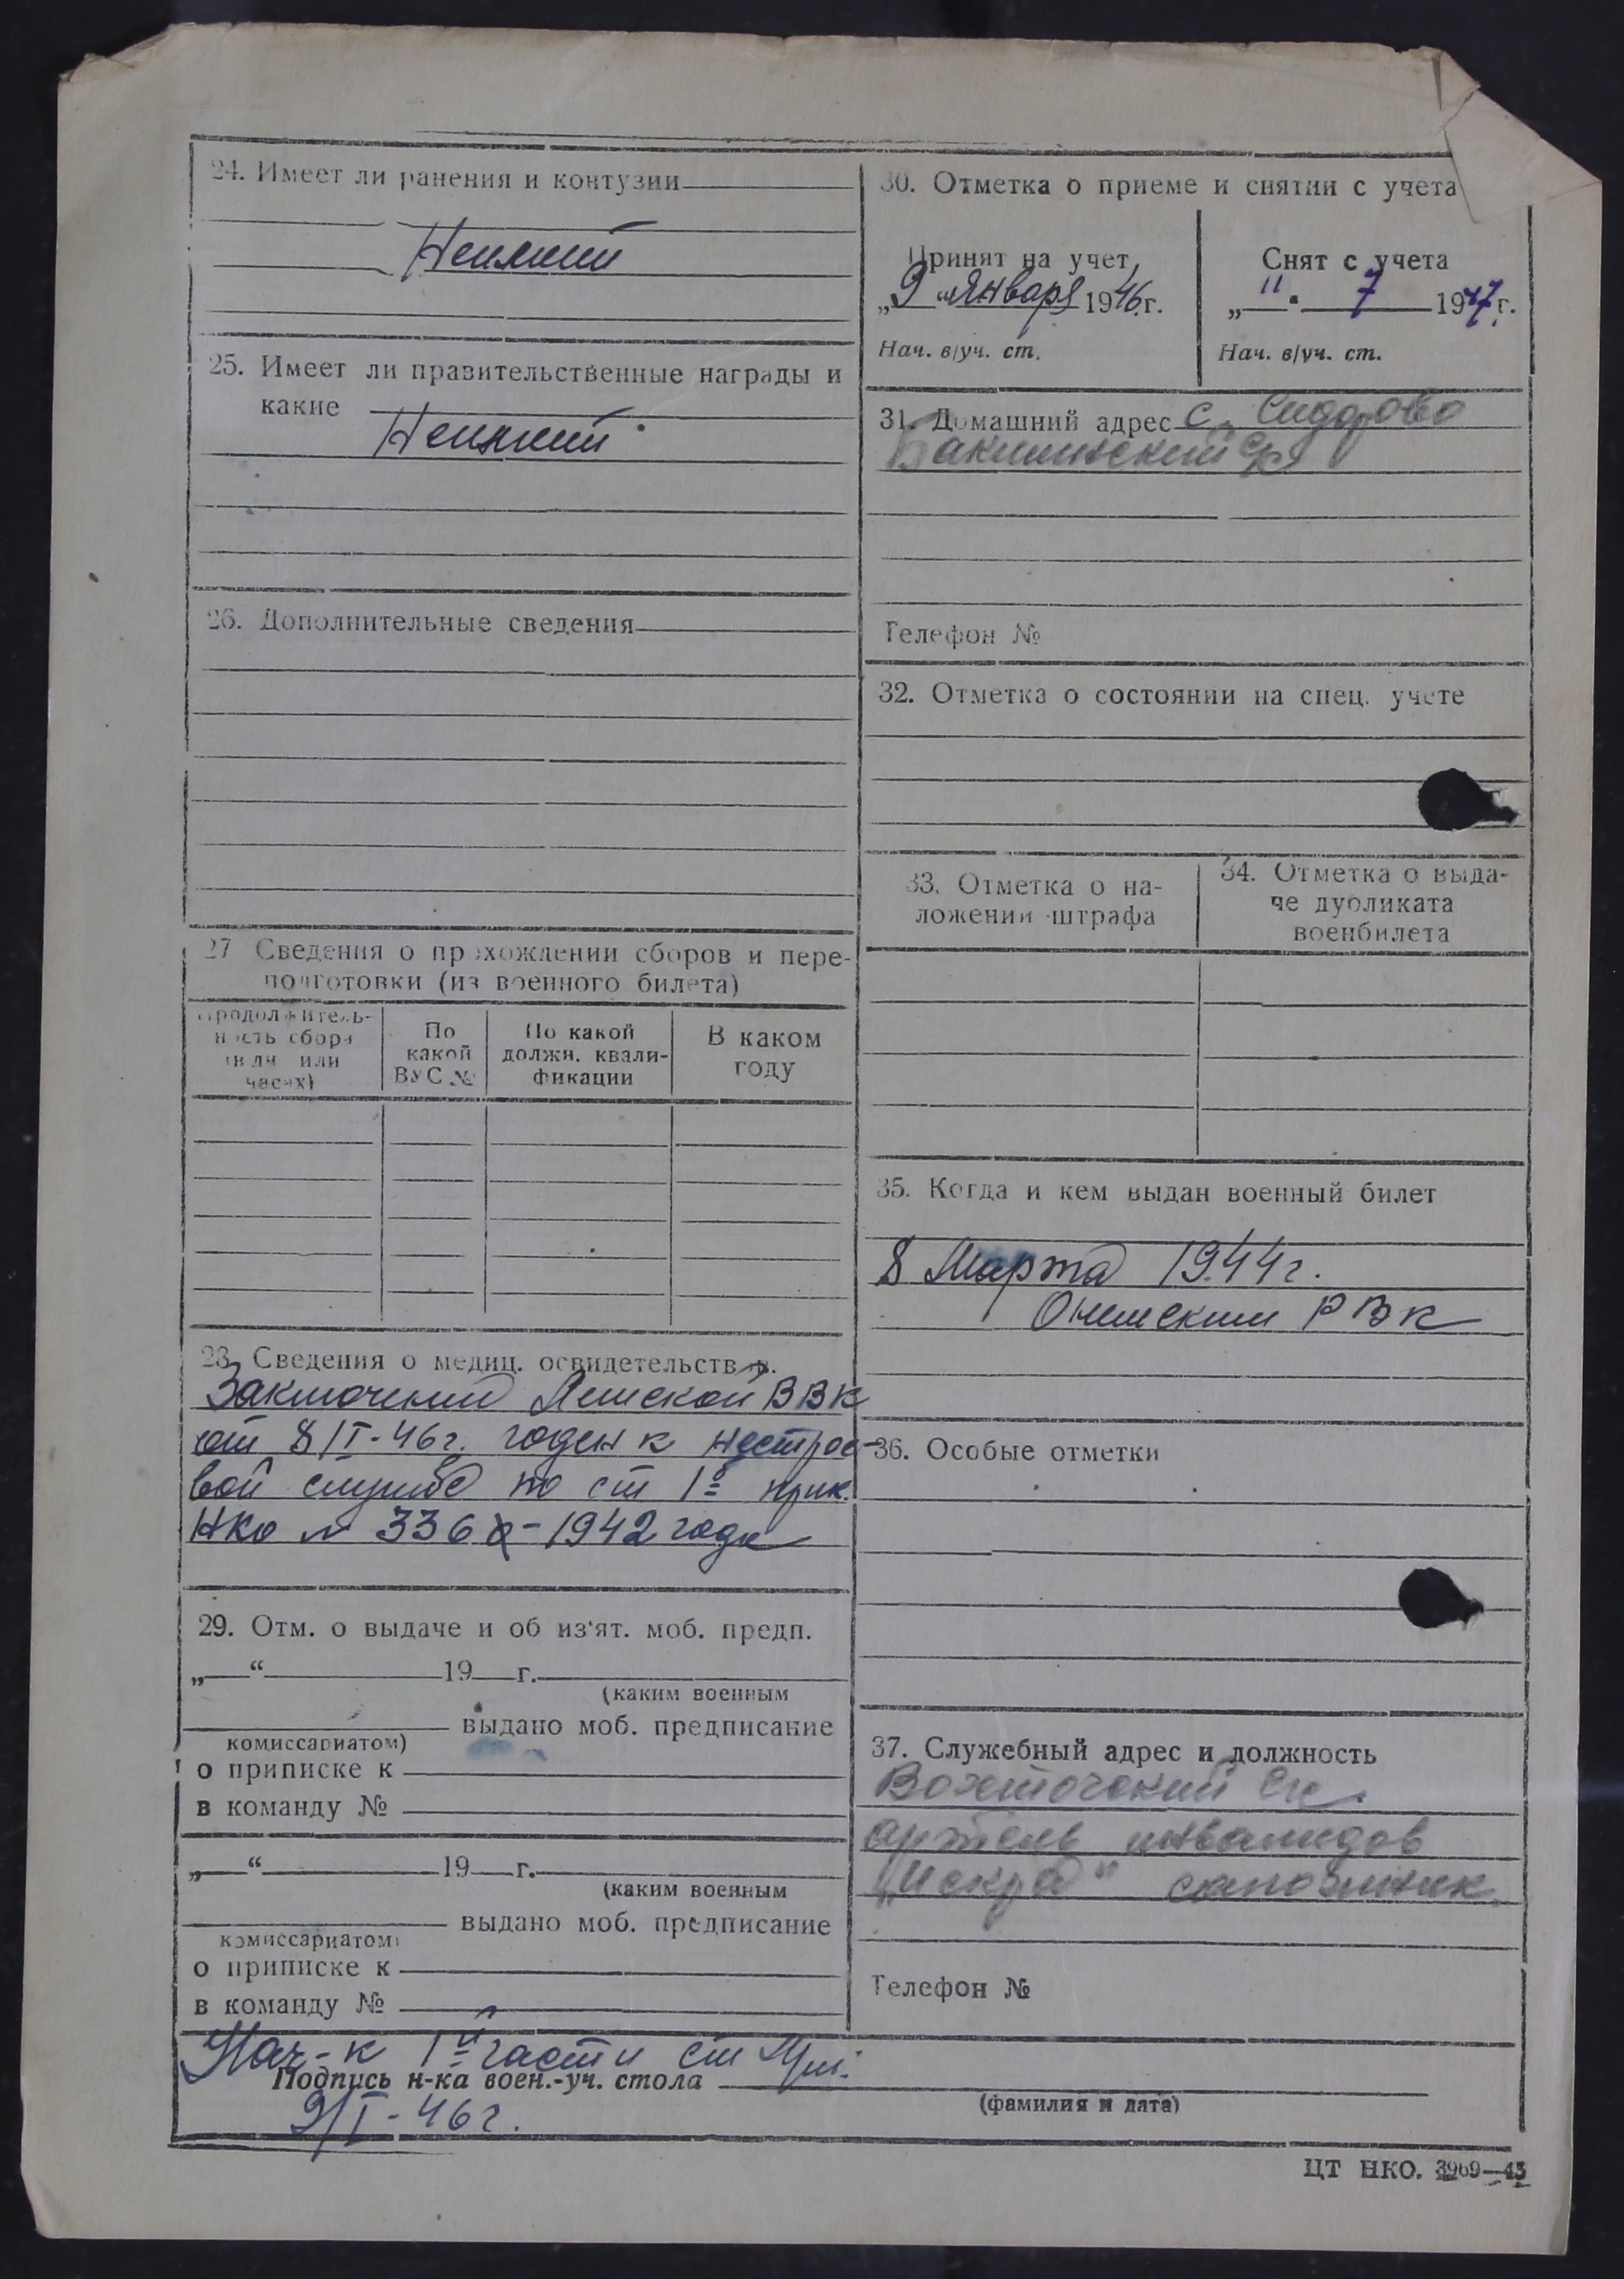 24. Имеет ли ранения и контузии
Неимеет
25. Имеет ли правительственные награды и
какие
Неимеет
26. Дополнительные сведения
27 Сведения о прохождении сборов и пере-
подготовки (из военного билета)
Продолжитель-
ность сбора
(в дн. или
часах)
По
какой
ВУС №
По какой
должн. квали-
фикации
В каком
году
28. Сведения о медиц. освидетельств.
ВВК
от 8/I-46г. годен к нестрое-
вой службе по ст 1й прик.
НКО № 336 - 1942 года
29. Отм. о выдаче и об из'ят. моб. предп.
„ “ 19 г.
(каким военным
выдано моб. предписание
комиссариатом)
о приписке к
в команду №
„ “ 19 г.
(каким военным
выдано моб. предписание
комиссариатом)
о приписке к
в команду №
30. Отметка о приеме и снятии с учета
Принят на учет
„9“ Января 1946 г.
Нач. в/уч. ст.
Снят с учета
„11“ 7 1947 г.
Нач. в/уч. ст.
31. Домашний адрес с. Сидорово
Бакшинский с/с
Телефон №
32. Отметка о состоянии на спец. учете
33. Отметка о на-
ложении штрафа
34. Отметка о выда-
че дубликата
военбилета
35. Когда и кем выдан военный билет
8 Марта 1944г.
РВК
36. Особые отметки
37. Служебный адрес и должность
артель инвалидов
„Искра“ сапожник
Телефон №
Нач-к 1й части ст
Подпись н-ка воен.-уч. стола
(фамилия и дата)
9/I-46г.
ЦТ НКО. 3969—43